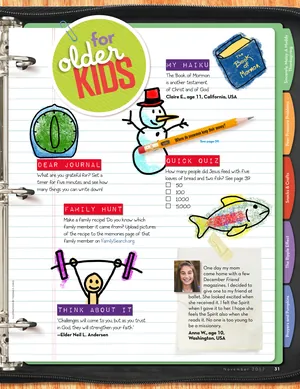 for
older
KIDS
MY HAIKU
The Book of Mormon
is another testament
of Christ and of God
Claire E., age 11, California, USA
The
Book
of
Mormon
See page 29
DEAR JOURNAL
What are you grateful for? Set a
timer for five minutes and see how
many things you can write down!
QUICK QUIZ
How many people did Jesus feed with five
loaves of bread and two fish? See page 29.
50
100
1,000
5,000
FAMILY HUNT
Make a family recipe! Do you know which
family member it came from? Upload pictures
of the recipe to the memories page of that
family member on FamilySearch.org.
THINK ABOUT IT
"Challenges will come to you, but as you trust
in God, they will strengthen your faith."
—Elder Neil L. Andersen
One day my mom
came home with a few
Friend
magazines. I decided to
give one to my friend at
ballet. She looked excited when
she received it. I felt the Spirit
when I gave it to her. I hope she
feels the Spirit also when she
reads it. No one is too young to
be a missionary.
Anna W., age 10,
Washington, USA
November 2017 31